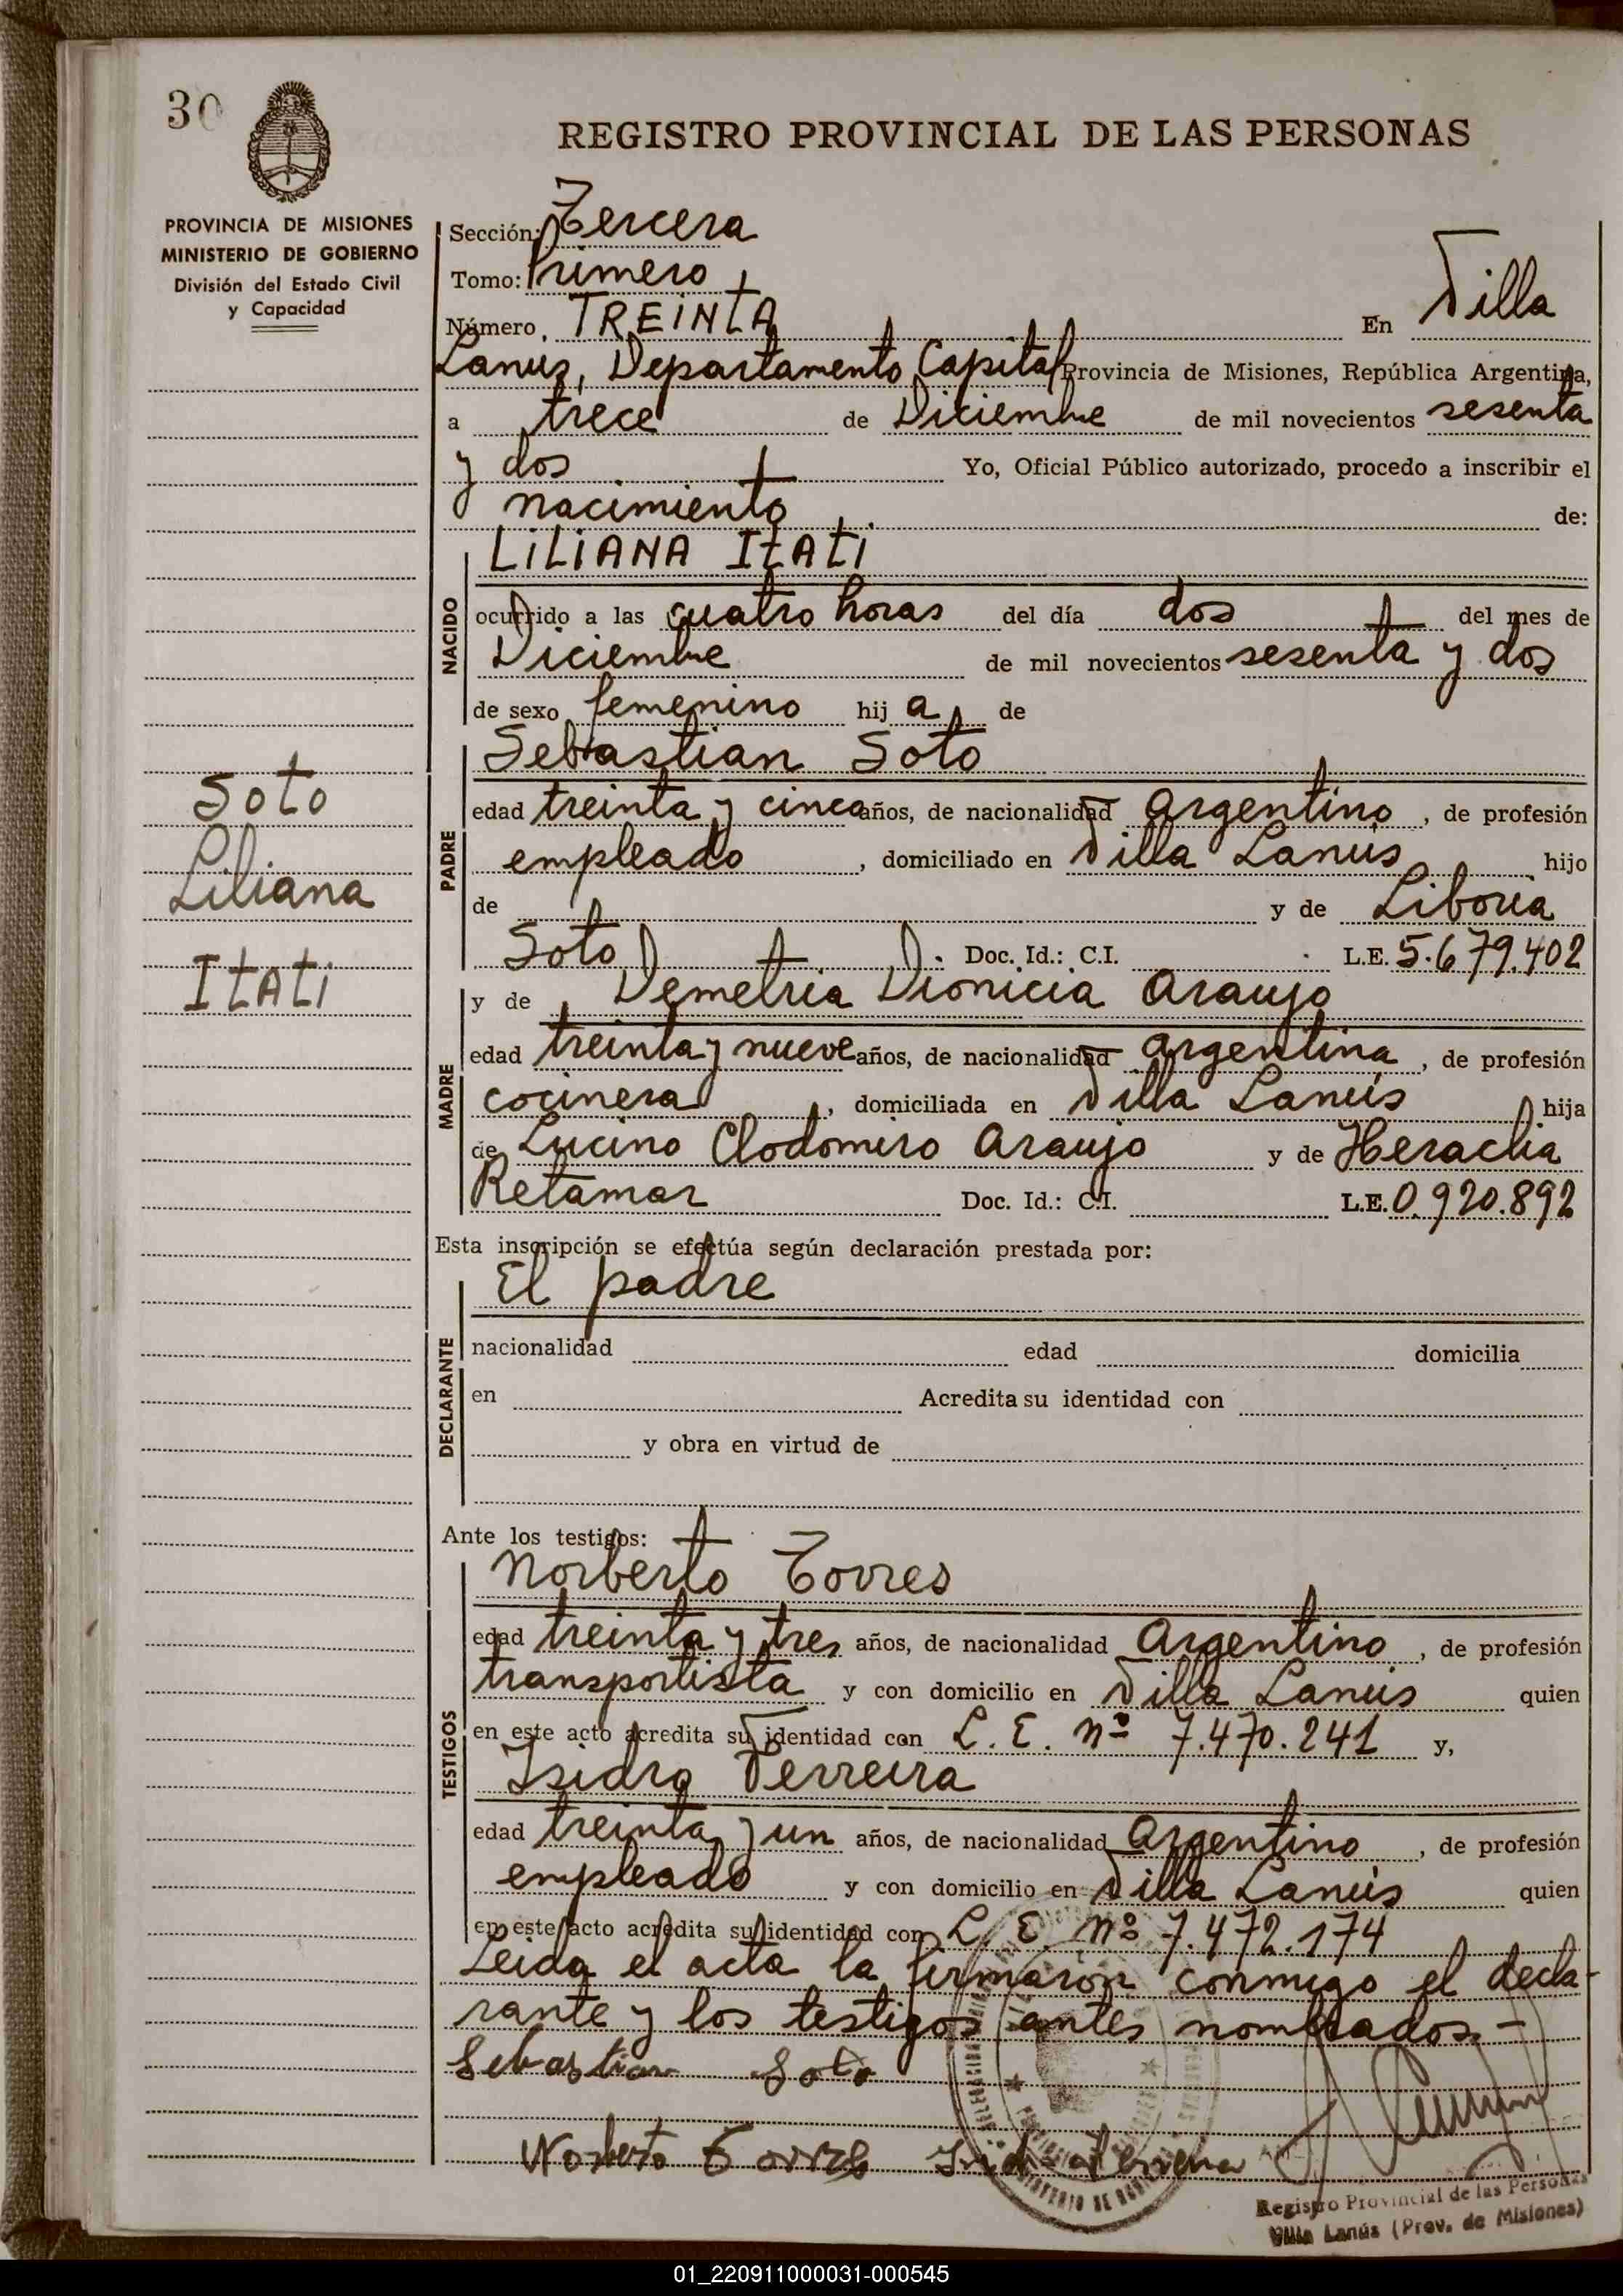 30
REGISTRO PROVINCIAL DE LAS PERSONAS
PROVINCIA DE MISIONES
MINISTERIO DE GOBIERNO
División del Estado Civil
y Capacidad
Sección: Tercera
Tomo: Primero
Número TREINTA En Villa
Lanus, Departamento Capital Provincia de Misiones, República Argentina,
a trece de Diciembre de mil novecientos sesenta
y dos Yo, Oficial Público autorizado, procedo a inscribir el
nacimiento de:
LILIANA ITATI
NACIDO
ocurrido a las cuatro horas del día dos del mes de
Diciembre de mil novecientos sesenta y dos
de sexo femenino hij a de
Sebastian Soto
Soto
Liliana
Itati
PADRE
edad treinta y cinco años, de nacionalidad Argentino, de profesión
empleado, domiciliado en Villa Lanús hijo
de y de Liboria
Soto Doc. Id.: C.I. L.E. 5.679.402
y de Demetria Dionicia Araujo
MADRE
edad treinta y nueve años, de nacionalidad Argentina, de profesión
cocinera, domiciliada en Villa Lanús hija
de Lucino Clodomiro Araujo y de Heraclia
Retamar Doc. Id.: C.I. L.E. 0.920.892
Esta inscripción se efectúa según declaración prestada por:
El padre
DECLARANTE
nacionalidad edad domicilia
en Acredita su identidad con
y obra en virtud de
Ante los testigos:
Norberto Torres
TESTIGOS
edad treinta y tres años, de nacionalidad Argentino, de profesión
transportista y con domicilio en Villa Lanús quien
en este acto acredita su identidad con L. E. Nº 7.470.241 y,
Isidro Ferreira
edad treinta y un años, de nacionalidad Argentino, de profesión
empleado y con domicilio en Villa Lanús quien
en este acto acredita su identidad con L. E. Nº 7.472.174
Leida el acta la firmaron conmigo el decla-
rante y los testigos antes nombrados.-
Sebastian Soto
Norberto Torres Isidro Ferreira
Registro Provincial de las Personas
Villa Lanús (Prov. de Misiones)
01_220911000031-000545